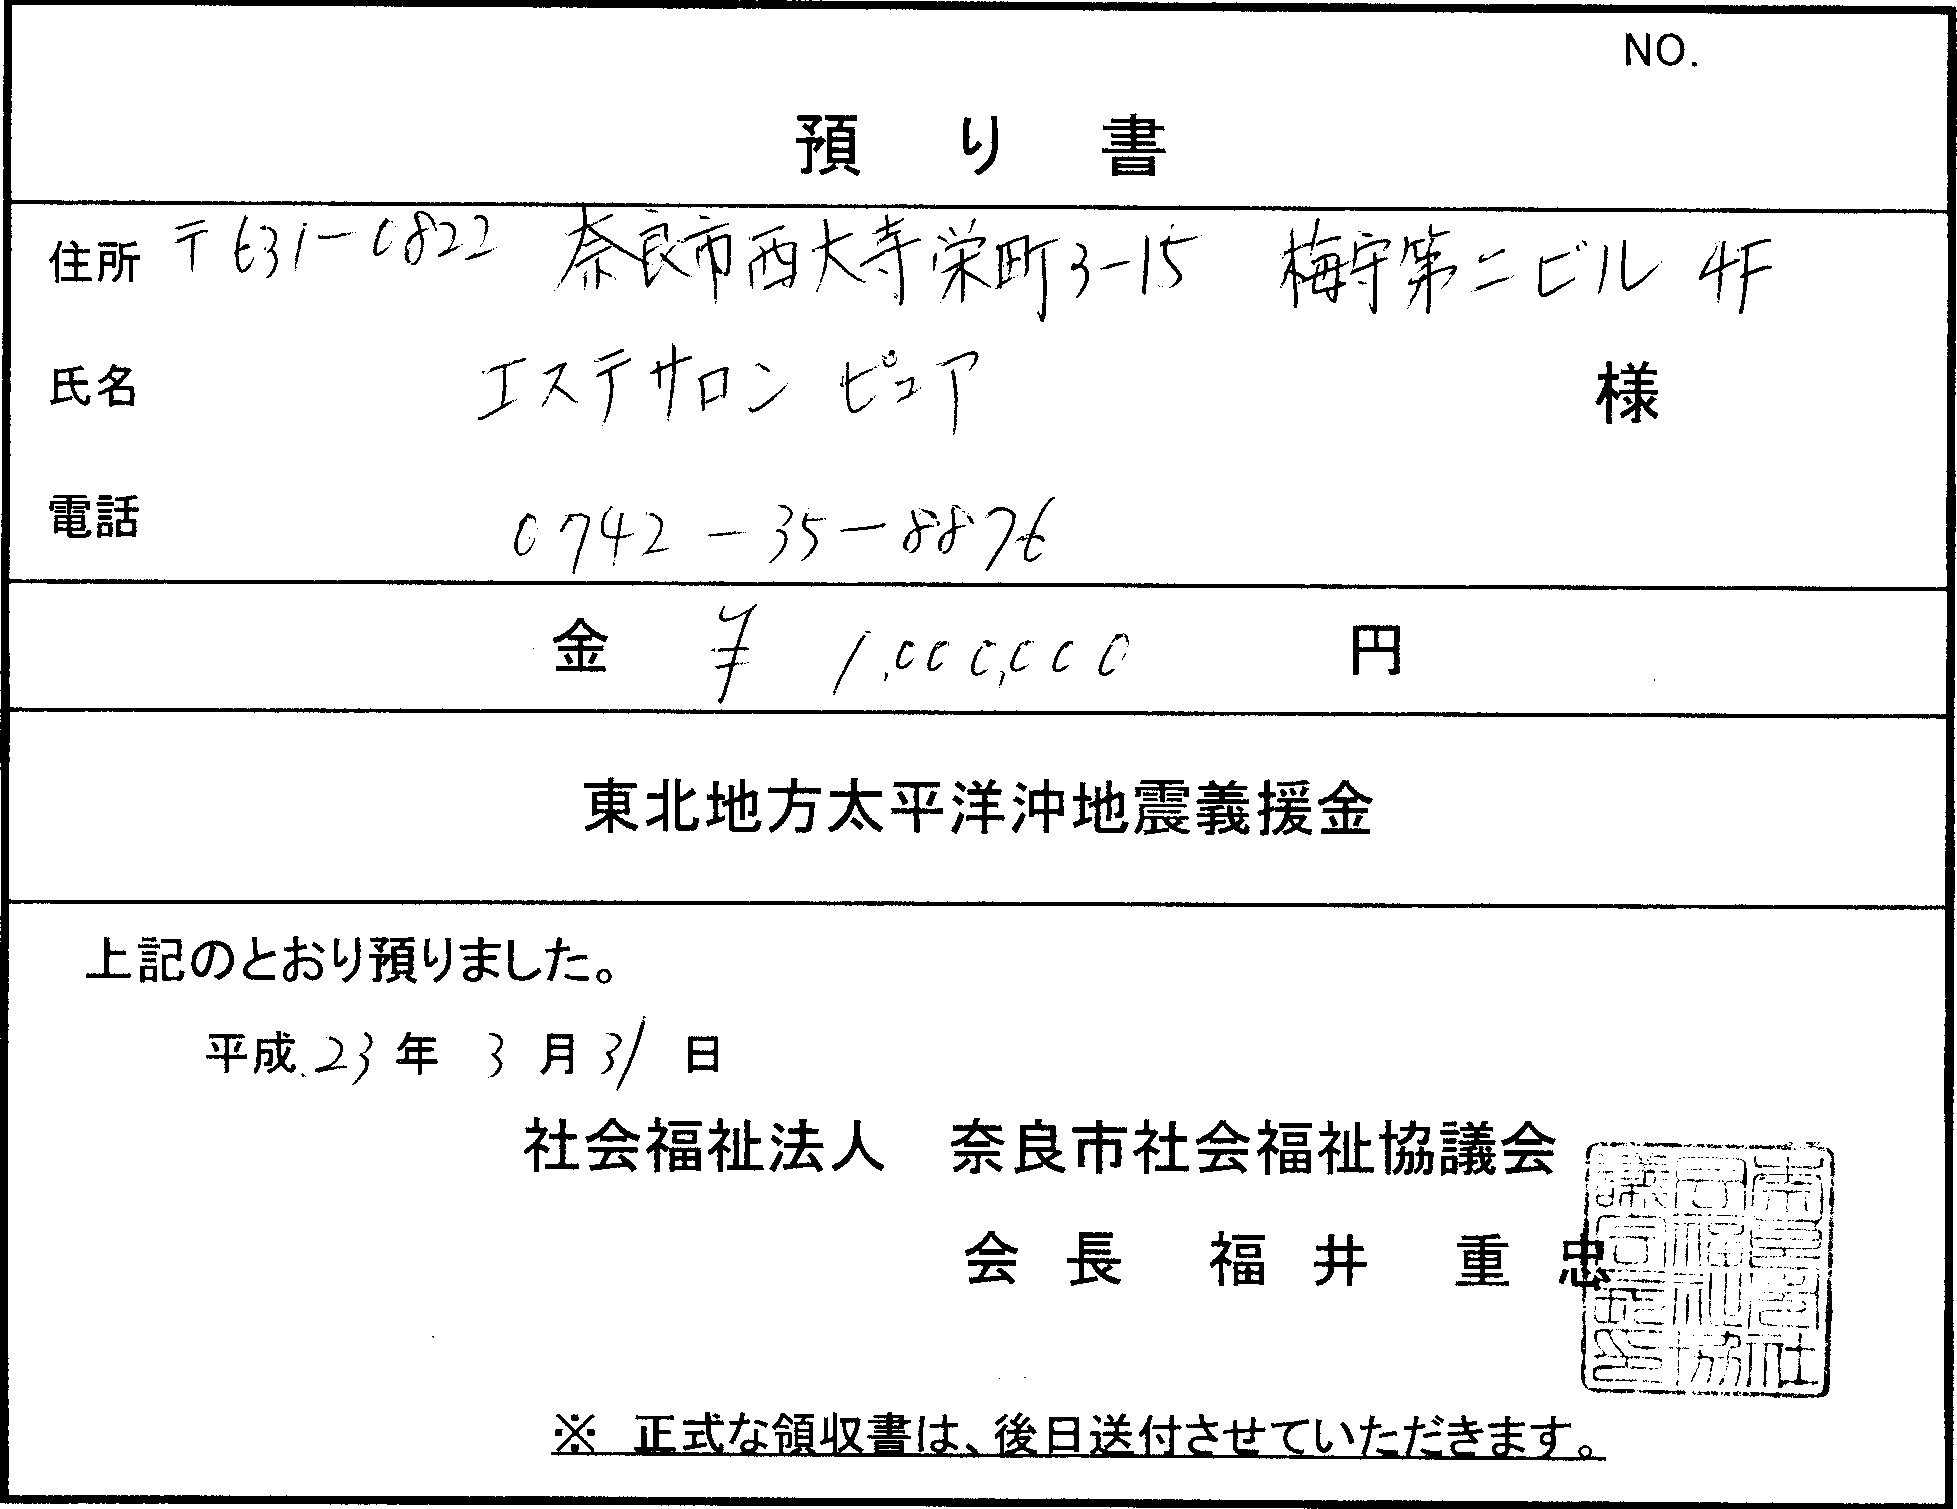 NO.
預り書
住所 〒631-0822 奈良市西大寺栄町3-15 梅守第二ビル 4F
氏名 エステサロン ピュア 様
電話 0742-35-8876
金 ¥ 1,000,000 円
東北地方太平洋沖地震義援金
上記のとおり預りました。
平成 23 年 3 月 31 日
社会福祉法人 奈良市社会福祉協議会
会長 福井 重忠
※ 正式な領収書は、後日送付させていただきます。